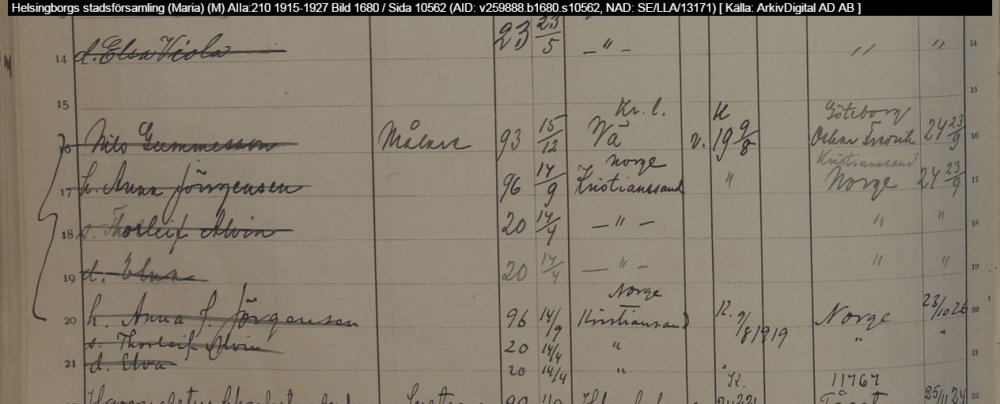 Helsingborgs stadsförsamling (Maria) (M) AIIa:210 1915-1927 Bild 1680 / Sida 10562 (AID: v259888.b1680.s10562, NAD: SE/LLA/13171) [ Källa: ArkivDigital AD AB ]
14 d. Elsa Viola 23 23/5 – " – " " 14
15 Kr. l. K Göteborg 15
16 Nils Gummesson Målare 93 15/12 Vä v. 19 9/8 Oskar 24 23/9
Norge Kristianssand
17 h. Anna Jörgensen 96 14/9 Kristianssand " Norge 24 23/9 17
18 s. Thorleif Alvin 20 14/4 – " – " " 18
19 d. Elna 20 14/4 – " – " " 19
Norge
20 h. Anna J. Jörgensen 96 14/9 Kristiansand K. 9/8 1919 Norge 23/10 26 20
s. Thorleif Alvin 20 14/4 " " "
21 d. Elva 20 14/4 " 21
K. 11767
90 25/11 24 22